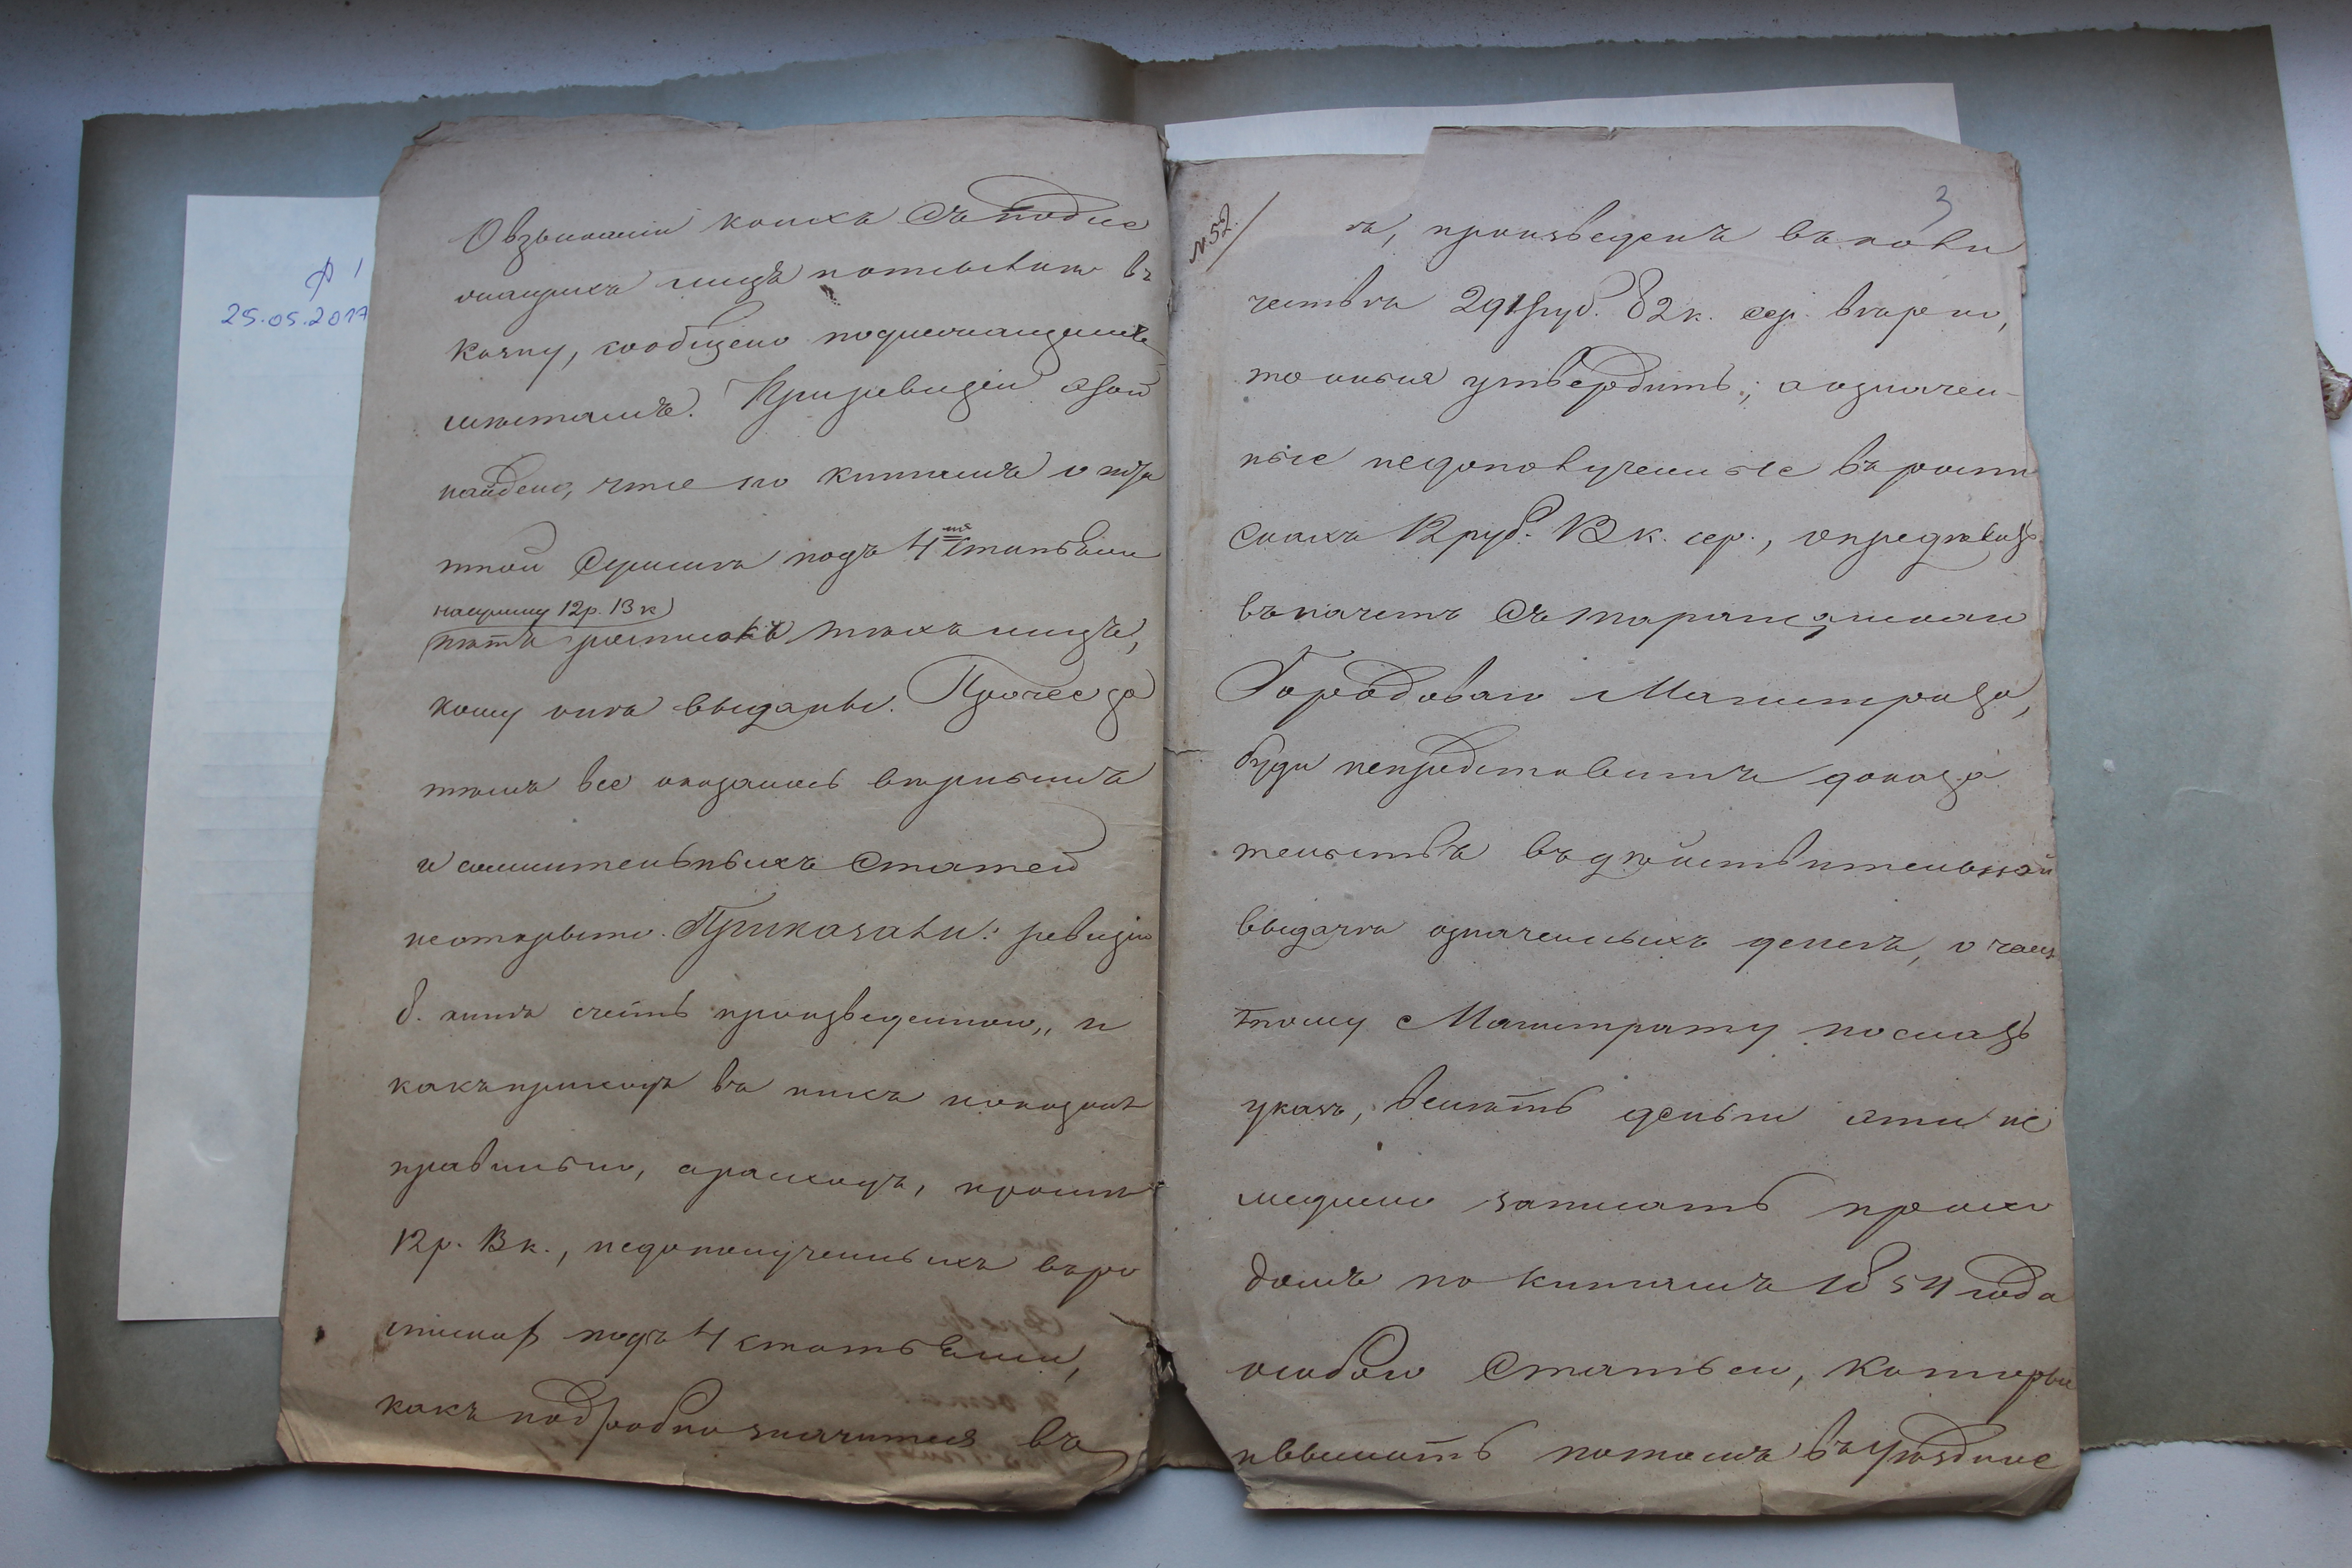 О взысканіи коихъ съ подле
жащихъ лицъ потребнаго въ
казну, сообщено подлежащимъ
мѣстамъ. При ревизіи сей
найдено, что по книгамъ о пѣш
шной суммѣ подъ 4мя статьями
на сумму 12р. 13 к
нѣтъ росписокъ тѣхъ лицъ,
кому онѣ выданы. Прочее за
тѣмъ все оказалось вѣрнымъ
и сомнительныхъ статей
не открыто. Приказали: ревизію
книгъ счесть произведенною, и
какъ приходъ въ нихъ показанъ
правильно, а расходъ, кромѣ
12р. 13к., недополученныхъ въ ро
спискахъ подъ 4 статьями,
какъ подробно значится въ
№ 52.
3
произведенъ въ коли
чествѣ 291 руб. 82 к. сер. вѣрно,
то оныя утвердить; а означен-
ные недополученные въ роспи
скахъ 12 руб. 13 к. сер., опредѣлить
въ начетъ съ Таращанскаго
Городоваго Магистрата,
буде непредставитъ доказа
тельствъ въ дѣйствительной
выдачѣ означенныхъ денегъ, о чемъ
тому Магистрату послать
указъ, велѣть деньги эти не
медленно записать прихо
домъ по книгамъ 1854 года
особою статьею, которые
и выслать потомъ въ Уѣздное
ф 1
25.05.2017